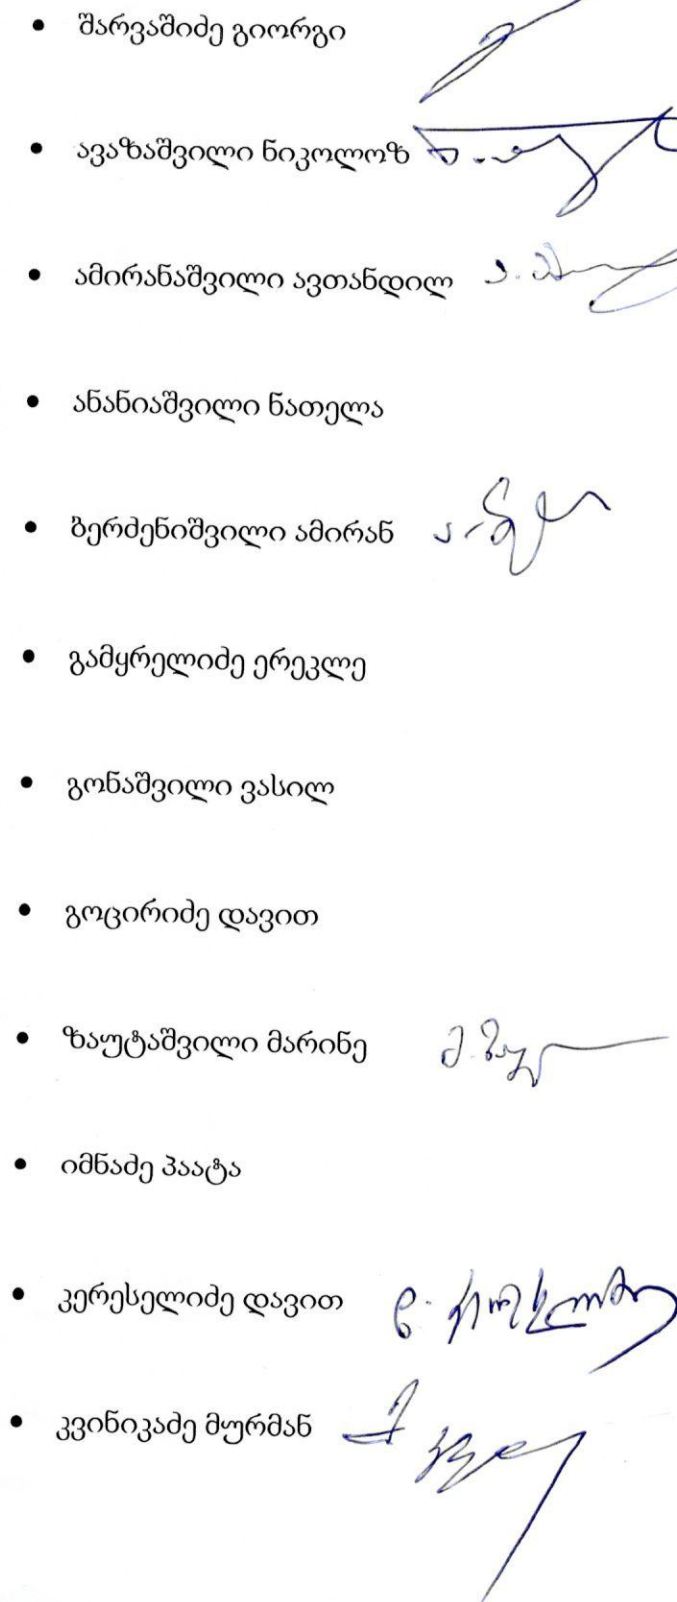 • შარვაშიძე გიორგი
• ავაზაშვილი ნიკოლოზ
• ამირანაშვილი ავთანდილ
• ანანიაშვილი ნათელა
• ბერძენიშვილი ამირან
• გამყრელიძე ერეკლე
• გონაშვილი ვასილ
• გოცირიძე დავით
• ზაუტაშვილი მარინე
• იმნაძე პაატა
• კერესელიძე დავით
• კვინიკაძე მურმან